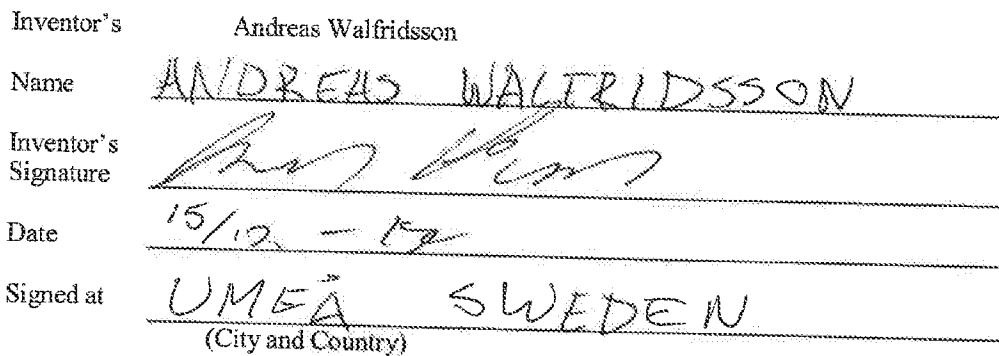 Inventor's Andreas Walfridsson
Name ANDREAS WALFRIDSSON
Inventor's
Signature
Date 15/12 -
Signed at UMEÅ SWEDEN
(City and Country)